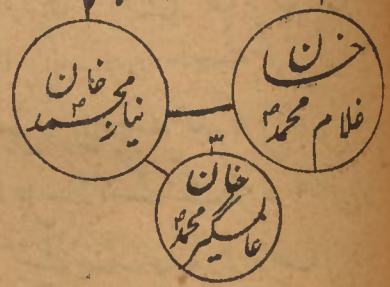 غلام محمدؐ خان
نیاز محمدؐ خان
عالمگیر محمدؐ خان